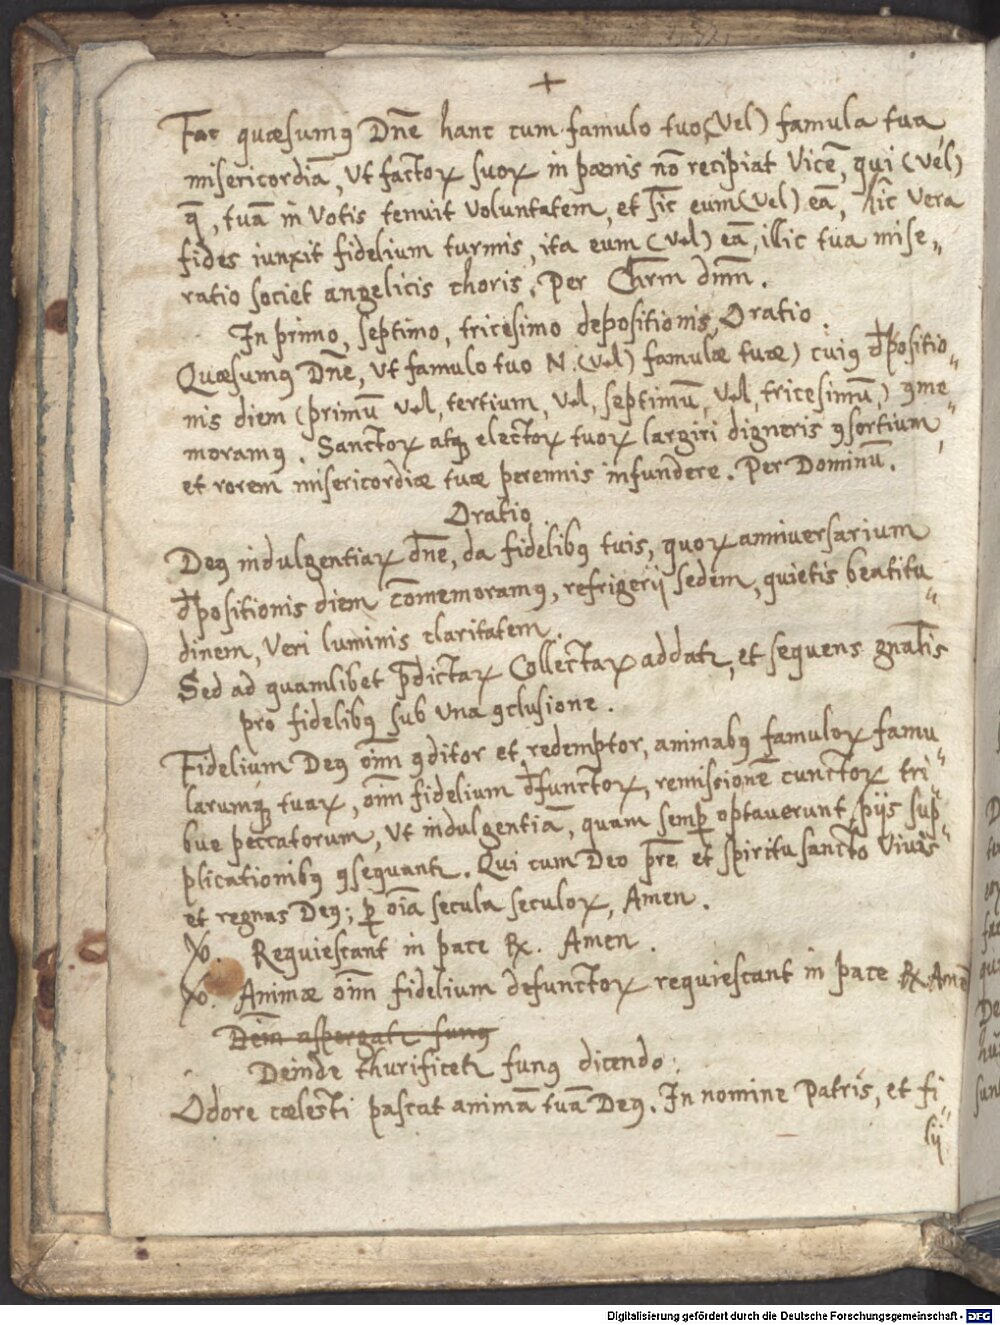 +
Fac quæsumꝰ Dn̄e hanc cum famulo tuo (vel) famula tua
misericordiā, ut factoꝝ suoꝝ in pœnis nō recipiat vicē, qui (vel)
q̄, tuā in votis tenuit voluntatem, et sic eum (vel) eā, hic vera
fides iunxit fidelium turmis, ita eum (vel) eā, illic tua mise„
ratio societ angelicis choris. Per Chrm dnm̄.
In primo, septimo, tricesimo depositionis, Oratio.
Quæsumꝰ Dn̄e, ut famulo tuo N. (vel) famulæ tuæ) cuiꝰ đpositio„
nis diem (primū vel, tertium, vel, septimū, vel, tricesimū,) ꝯme„
moramꝰ. Sanctoꝝ atqꝫ electoꝝ tuoꝝ largiri digneris ꝯsortium,
et rorem misericordiæ tuæ perennis infundere. Per Dominū.
Oratio
Deꝰ indulgentiaꝝ dn̄e, da fidelibꝰ tuis, quoꝝ anniversarium
đpositionis diem com̄emoramꝰ, refrigerij sedem, quietis beatitu„
dinem, veri luminis claritatem.
Sed ad quamlibet p̄dictaꝝ Collectaꝝ addatr, et sequens gn̄alis
pro fidelibꝰ sub una ꝯclusione.
Fidelium Deꝰ oīm ꝯditor et redemptor, animabꝰ famuloꝝ famu„
larumqꝫ tuaꝝ, oīm fidelium đfunctoꝝ, remissionē cunctoꝝ tri„
bue peccatorum, ut indulgentiā, quam semꝑ optaverunt, pijs sup„
plicationibꝰ ꝯsequantr. Qui cum Deo p̄re et spiritu sancto vivis
et regnas Deꝰ; ꝑ oīa secula seculoꝝ, Amen.
℣. Requiescant in pace ℞. Amen.
℣. Animæ oīm fidelium defunctoꝝ requiescant in pace ℞. Amē
Dein aspergatr funꝰ
Deinde thurificetr funꝰ dicendo:
Odore cœlesti pascat animā tuā Deꝰ. In nomine Patris, et fi„
lij
Digitalisierung gefördert durch die Deutsche Forschungsgemeinschaft - DFG